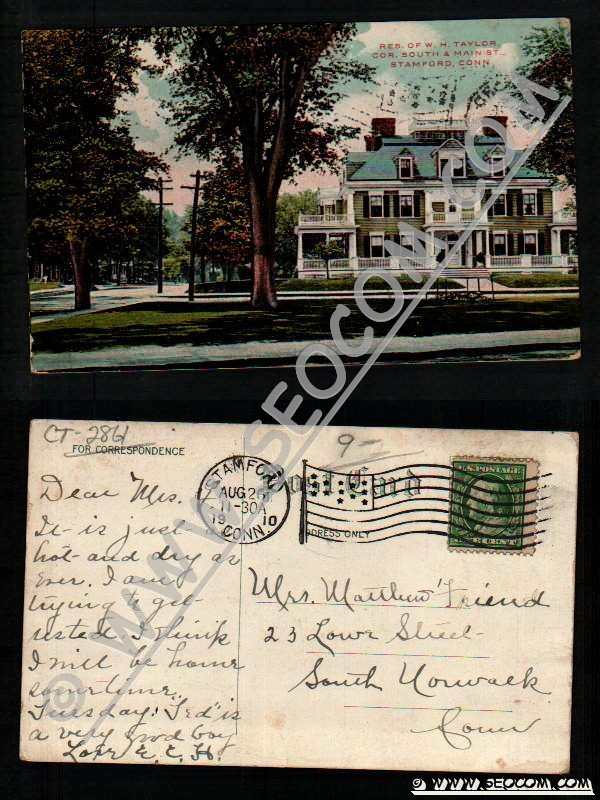 RES. OF W. H. TAYLOR
COR. SOUTH & MAIN ST.,
STAMFORD, CONN.
© WWW.SEOCOM.COM
CT-2861
9-
FOR CORRESPONDENCE
Post Card
ADDRESS ONLY
STAMFORD
AUG 26
11-30A
1910
CONN.
U.S. POSTAGE
Dear Mrs.
It is just
hot and dry as
Ever. I am
trying to get
rested. I think
I will be home
sometime
Tuesday. "Ted" is
a very good boy
Love E. C. H.
Mrs. Matthew Friend
23 Lowe Street
South Norwalk
Conn
© WWW.SEOCOM.COM
© WWW.SEOCOM.COM